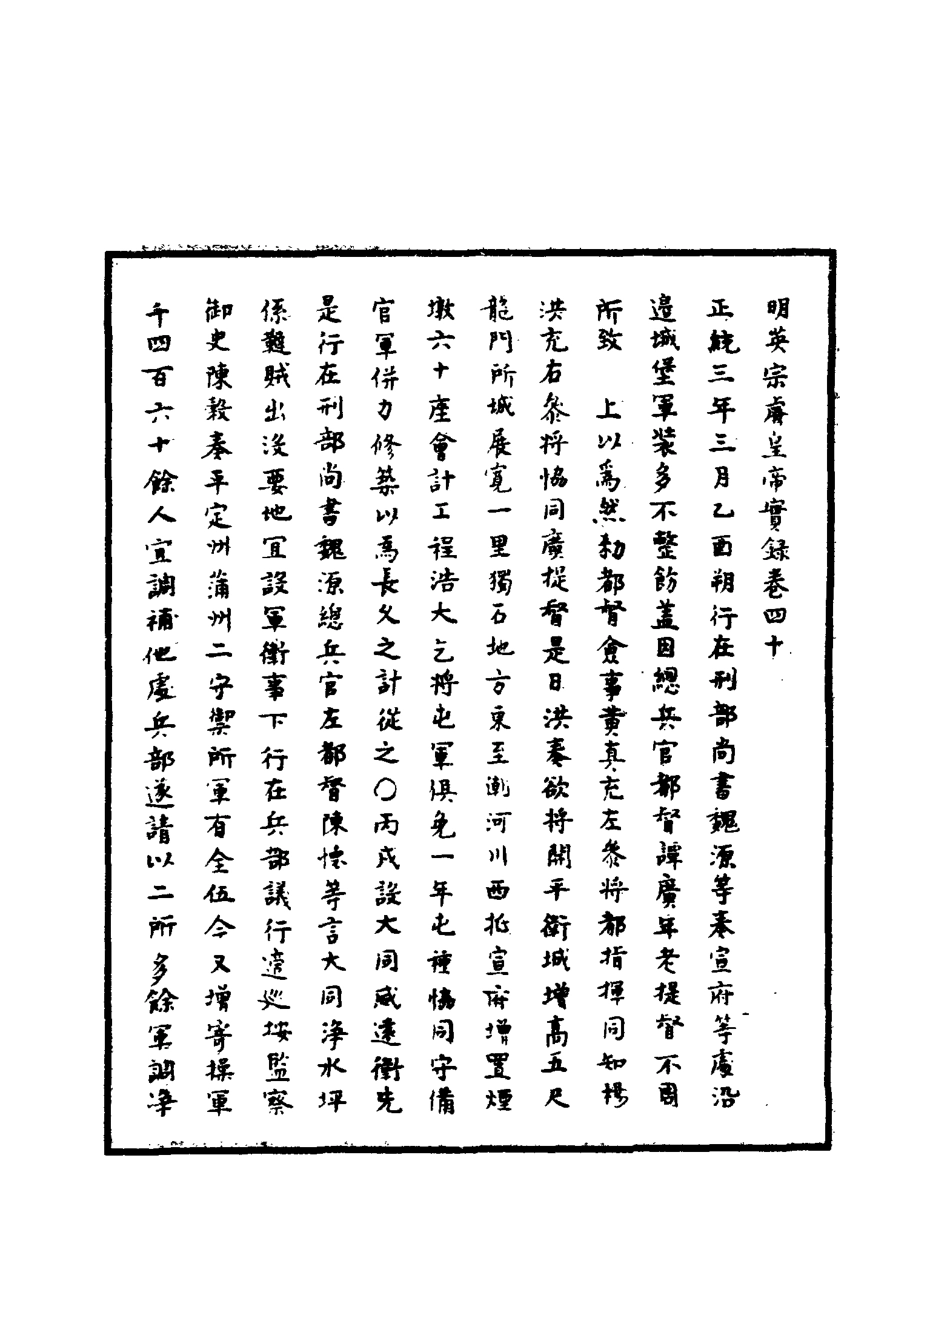 明英宗睿皇帝實録卷四十
正統三年三月乙酉朔行在刑部尚書魏源等奏宣府等處沿
邊城堡軍裝多不整飭蓋因總兵官都督譚廣年老提督不周
所致　上以爲然勑都督僉事黄真充左叅將都指揮同知楊
洪充右叅將恊同廣提督是日洪奏欲將開平衛城增高五尺
龍門所城展寬一里獨石地方東至潮河川西抵宣府增置煙
墩六十座會計工程浩大乞將屯軍俱免一年屯種恊同守備
官軍併力修築以爲長久之計從之〇丙戌設大同威遠衛先
是行在刑部尚書魏源總兵官左都督陳懷等言大同淨水坪
係難賊出没要地宜設軍衛事下行在兵部議行遣巡按監察
御史陳榖奏平定州蒲州二守禦所軍有全伍今又增寄操軍
千四百六十餘人宜調補他處兵部遂請以二所多餘軍調淨